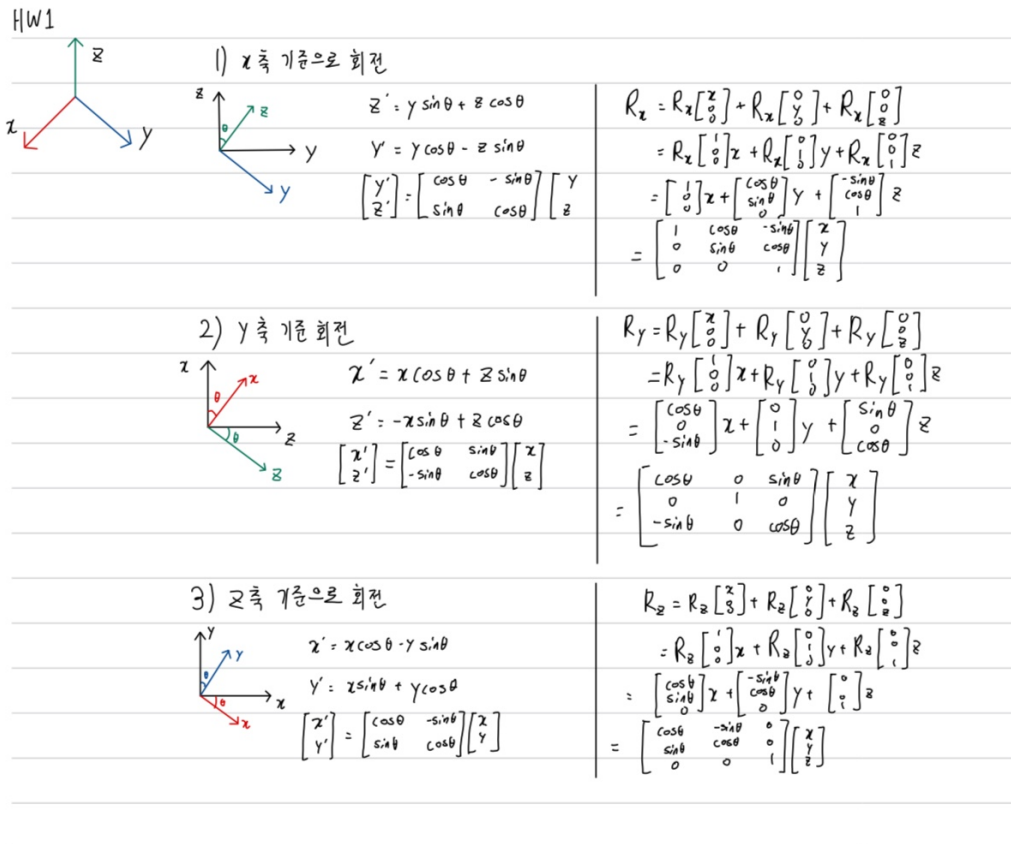 HW1
z
x
y
1) x축 기준으로 회전
z
z
θ
y
y
z' = y sinθ + z cosθ
y' = y cosθ - z sinθ
[y' z'] = [cosθ -sinθ; sinθ cosθ][y z]
Rx = Rx[x 0 0] + Rx[0 y 0] + Rx[0 0 z]
= Rx[1 0 0]x + Rx[0 1 0]y + Rx[0 0 1]z
= [1 0 0]x + [cosθ sinθ 0]y + [-sinθ cosθ 1]z
= [1 cosθ -sinθ; 0 sinθ cosθ; 0 0 1][x y z]
2) y축 기준 회전
x
x
θ
θ
z
z
x' = x cosθ + z sinθ
z' = -x sinθ + z cosθ
[x' z'] = [cosθ sinθ; -sinθ cosθ][x z]
Ry = Ry[x 0 0] + Ry[0 y 0] + Ry[0 0 z]
= Ry[1 0 0]x + Ry[0 1 0]y + Ry[0 0 1]z
= [cosθ 0 -sinθ]x + [0 1 0]y + [sinθ 0 cosθ]z
= [cosθ 0 sinθ; 0 1 0; -sinθ 0 cosθ][x y z]
3) z축 기준으로 회전
y
y
θ
θ
x
x
x' = x cosθ - y sinθ
y' = x sinθ + y cosθ
[x' y'] = [cosθ -sinθ; sinθ cosθ][x y]
Rz = Rz[x 0 0] + Rz[0 y 0] + Rz[0 0 z]
= Rz[1 0 0]x + Rz[0 1 0]y + Rz[0 0 1]z
= [cosθ sinθ 0]x + [-sinθ cosθ 0]y + [0 0 1]z
= [cosθ -sinθ 0; sinθ cosθ 0; 0 0 1][x y z]